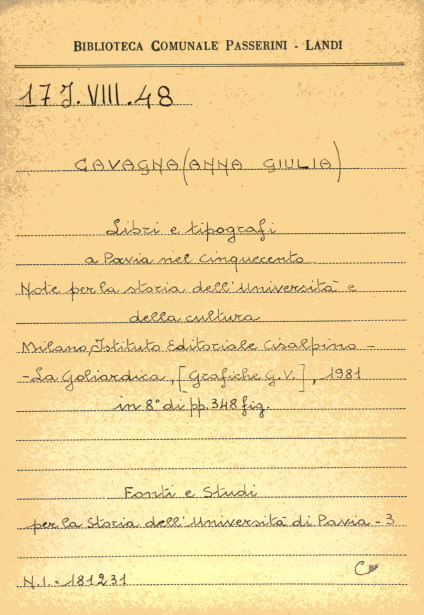 BIBLIOTECA COMUNALE PASSERINI - LANDI
17 J. VIII. 48
CAVAGNA (ANNA GIULIA)
Libri e tipografi
a Pavia nel Cinquecento
Note per la storia dell'Università e
della cultura
Milano, Istituto Editoriale Cisalpino -
- La Goliardica, [Grafiche G.V.], 1981
in 8° di pp. 348 fig.
Fonti e Studi
per la Storia dell'Università di Pavia - 3
N.I. - 181231